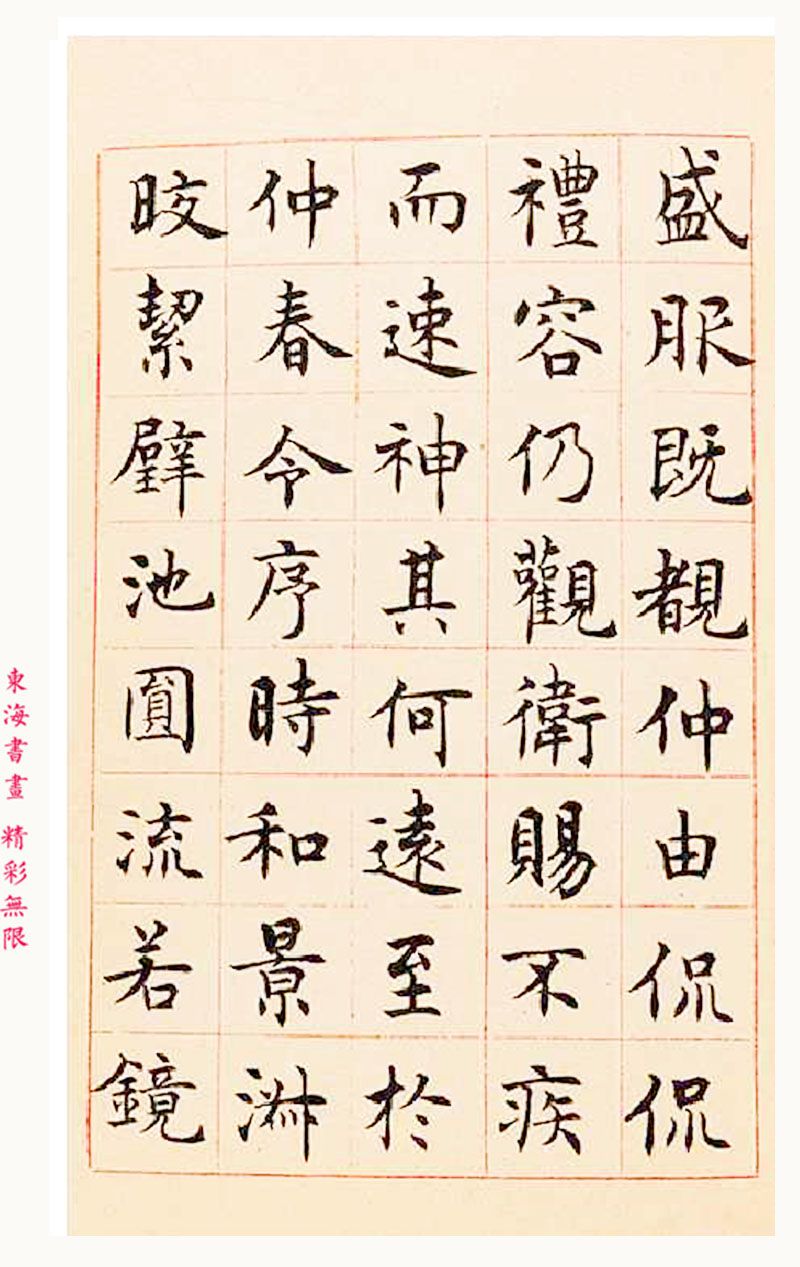 盛服既覩仲由侃侃
禮容仍觀衛賜不疾
而速神其何遠至於
仲春令序時和景淑
皎絜璧池圓流若鏡
東海書畫 精彩無限